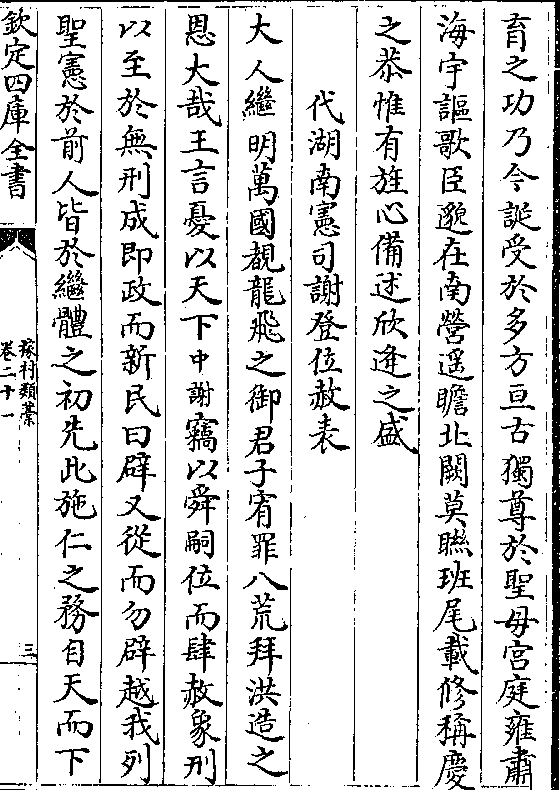 育之功乃今誕受於多方亘古獨尊於聖母宫庭雍肅
海宇謳歌臣邈在南營遥瞻北闕莫聮班尾載修稱慶
之恭惟有旌心備述欣逢之盛
代湖南憲司謝登位赦表
大人繼明萬國覩龍飛之御君子宥罪八荒拜洪造之
恩大哉王言憂以天下中謝竊以舜嗣位而肆赦象刑
以至於無刑成即政而新民曰辟又從而勿辟越我列
聖憲於前人皆於繼體之初先此施仁之務自天而下
欽定四庫全書
稼村類藁
卷二十一
三